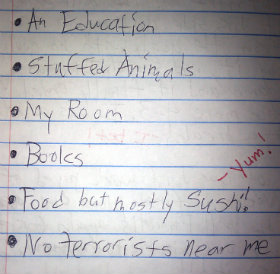 • An Education
• Stuffed Animals
• My Room
• Books
- Yum!
• Food but mostly Sushi!
• No terrorists near me